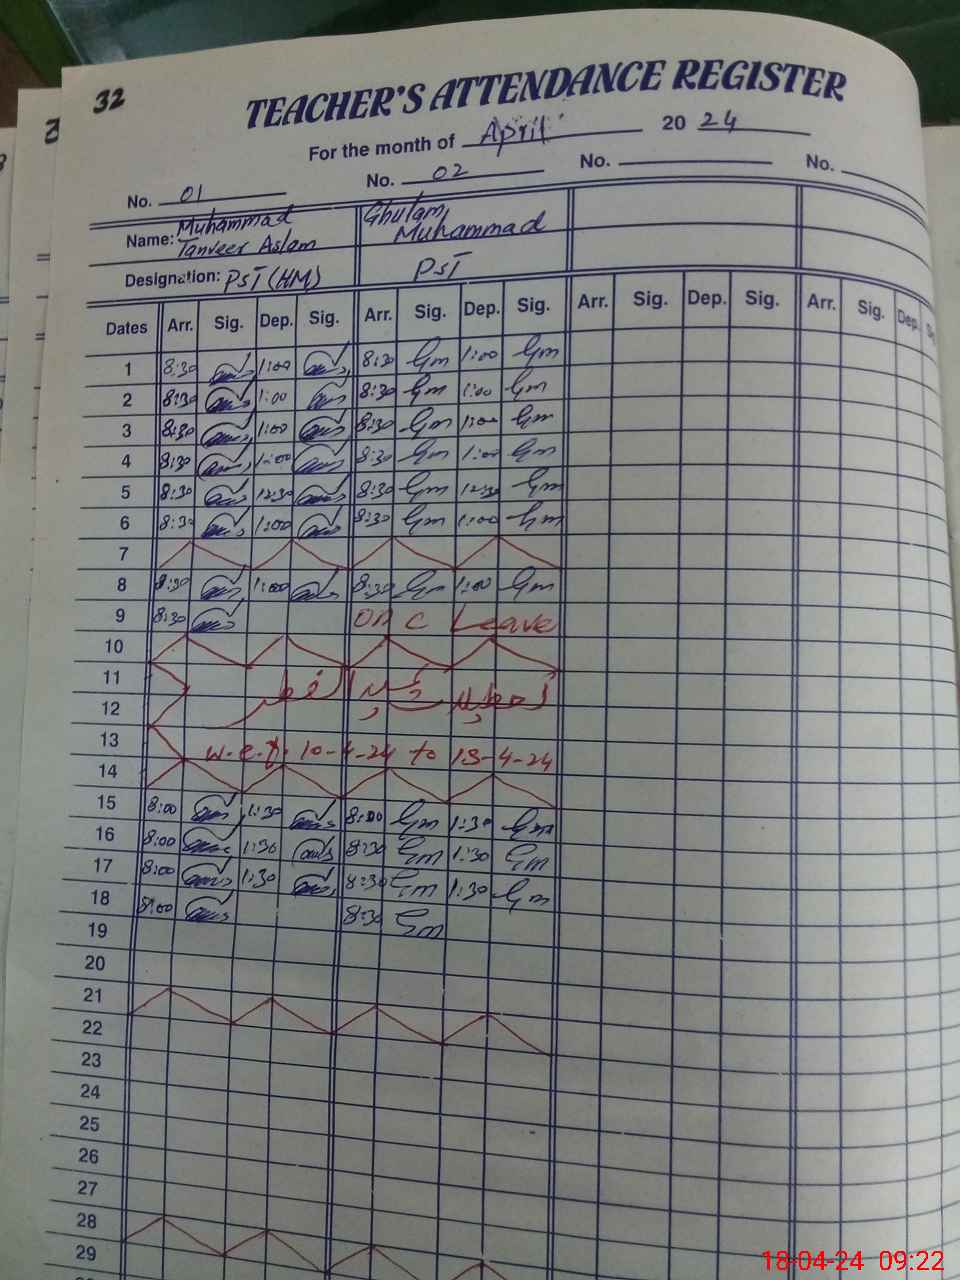 32
TEACHER'S ATTENDANCE REGISTER
For the month of April 20 24
No. 01 No. 02 No. No.
Name: Muhammad Tanveer Aslam Ghulam Muhammad
Designation: PST (HM) PST
Dates Arr. Sig. Dep. Sig. Arr. Sig. Dep. Sig. Arr. Sig. Dep. Sig. Arr. Sig. Dep.
1 8:30 1:00 8:30 Gm 1:00 Gm
2 8:30 1:00 8:30 Gm 1:00 Gm
3 8:30 1:00 8:30 Gm 1:00 Gm
4 8:30 1:00 8:30 Gm 1:00 Gm
5 8:30 12:30 8:30 Gm 12:30 Gm
6 8:30 1:00 8:30 Gm 1:00 Gm
7
8 8:30 1:00 8:30 Gm 1:00 Gm
9 8:30 on C Leave
10
11 تعطیلات عید الفطر
12
13 w.e.f. 10-4-24 to 13-4-24
14
15 8:00 1:30 8:00 Gm 1:30 Gm
16 8:00 1:30 8:30 Gm 1:30 Gm
17 8:00 1:30 8:30 Gm 1:30 Gm
18 8:00 8:30 Gm
19
20
21
22
23
24
25
26
27
28
29
18-04-24 09:22